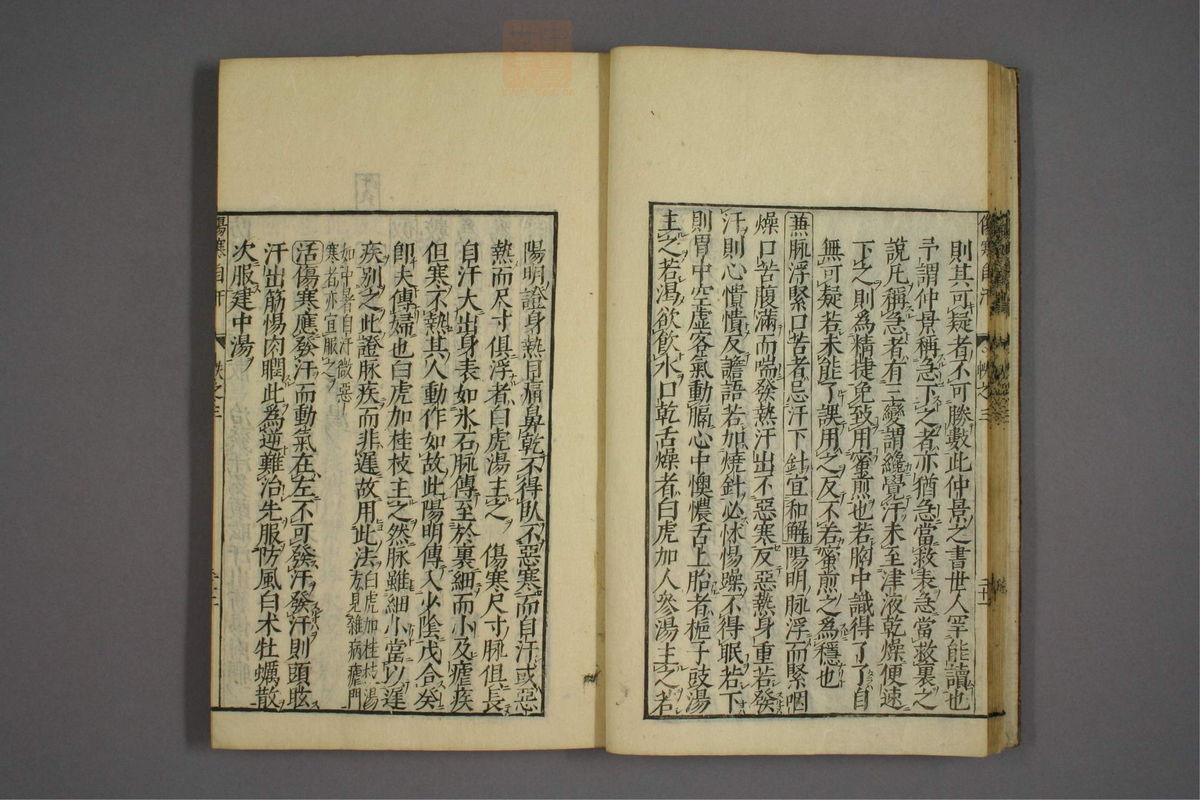 則其可疑者不可勝數此仲景之書世人罕能讀也
予謂仲景稱急下之者亦猶急當救表急當救裏之
說凡稱急者有三變謂纔覺汗未至津液乾燥便速
下之則爲精捷免致用蜜煎也若胸中識得了了自
無可疑若未能了誤用之反不若蜜煎之爲穩也
兼脉浮緊口苦者忌汗下針宜和解陽明脉浮而緊咽
燥口苦腹滿而喘發熱汗出不惡寒反惡熱身重若發
汗則心憒憒反譫語若加燒針必怵惕躁不得眠若下
則胃中空虛客氣動膈心中懊憹舌上胎者梔子豉湯
主之若渴欲飲水口乾舌燥者白虎加人參湯主之若
陽明證身熱目痛鼻乾不得臥不惡寒而自汗或惡
熱而尺寸俱浮者白虎湯主之 傷寒尺寸脉俱長
自汗大出身表如氷石脉傳至於裏細而小及瘧疾
但寒不熱其人動作如故此陽明傳入少陰戊合癸
卽夫傳婦也白虎加桂枝主之然脉雖細小當以遲
疾別之此證脉疾而非遲故用此法白虎加桂枝湯方見雜病瘧門
如中暑自汗微惡寒者亦宜服之
活傷寒應發汗而動氣在左不可發汗發汗則頭眩
汗出筋惕肉瞤此為逆難治先服防風白术牡蠣散
次服建中湯
傷寒自汗
帙之三